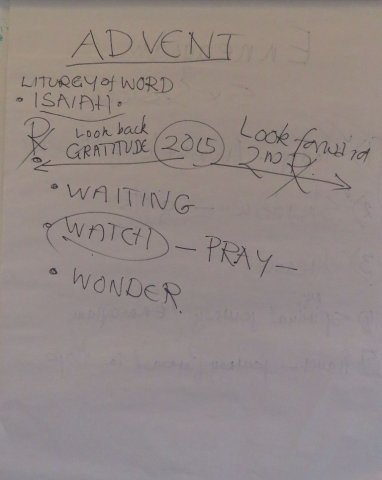 ADVENT
LITURGY of WORD
• ISAIAH •
Look back 2015 Look forward
GRATITUDE 2ND
• WAITING
• WATCH — PRAY —
• WONDER